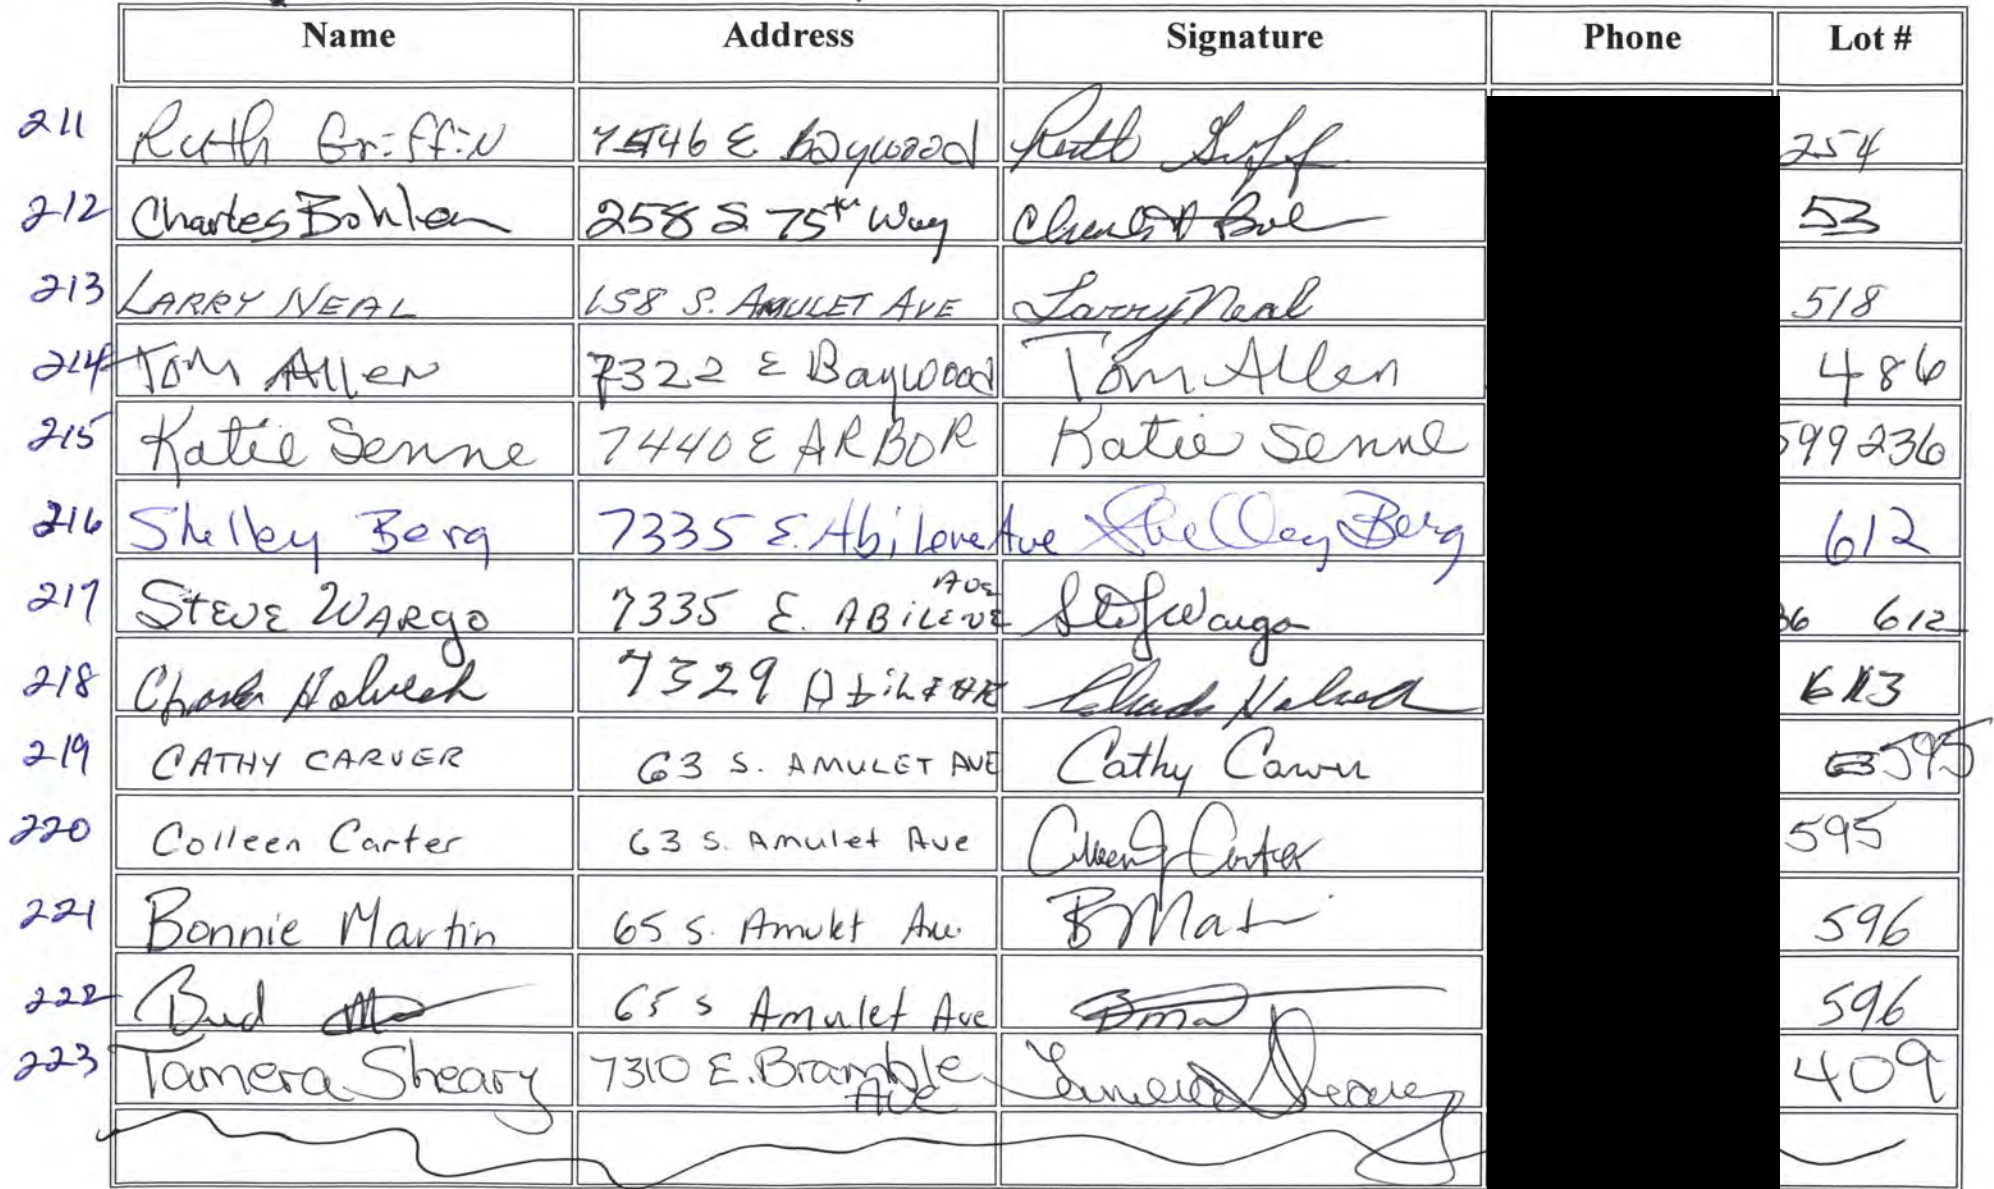 Name Address Signature Phone Lot #
211 Ruth Griffin 7446 E. Baywood Ruth Griff 254
212 Charles Bohlen 258 S 75th Way 53
213 LARRY NEAL 158 S. AMULET AVE Larry Neal 518
214 Tom Allen 7322 E Baywood Tom Allen 486
215 Katie Senne 7440 E ARBOR Katie Senne 599236
216 Shelley Berg 7335 E. Abilene Ave Shelley Berg 612
217 STEVE WARGO 7335 E. ABILENE AVE Wargo 36 612
218 7329 613
219 CATHY CARVER 63 S. AMULET AVE Cathy Carver 595
220 Colleen Carter 63 S. Amulet Ave Carter 595
221 Bonnie Martin 65 S. Amulet Ave. B Mat 596
222 Bud 65 S Amulet Ave 596
223 Tamera Sheary 7310 E. Bramble Ave Tamera Sheary 409